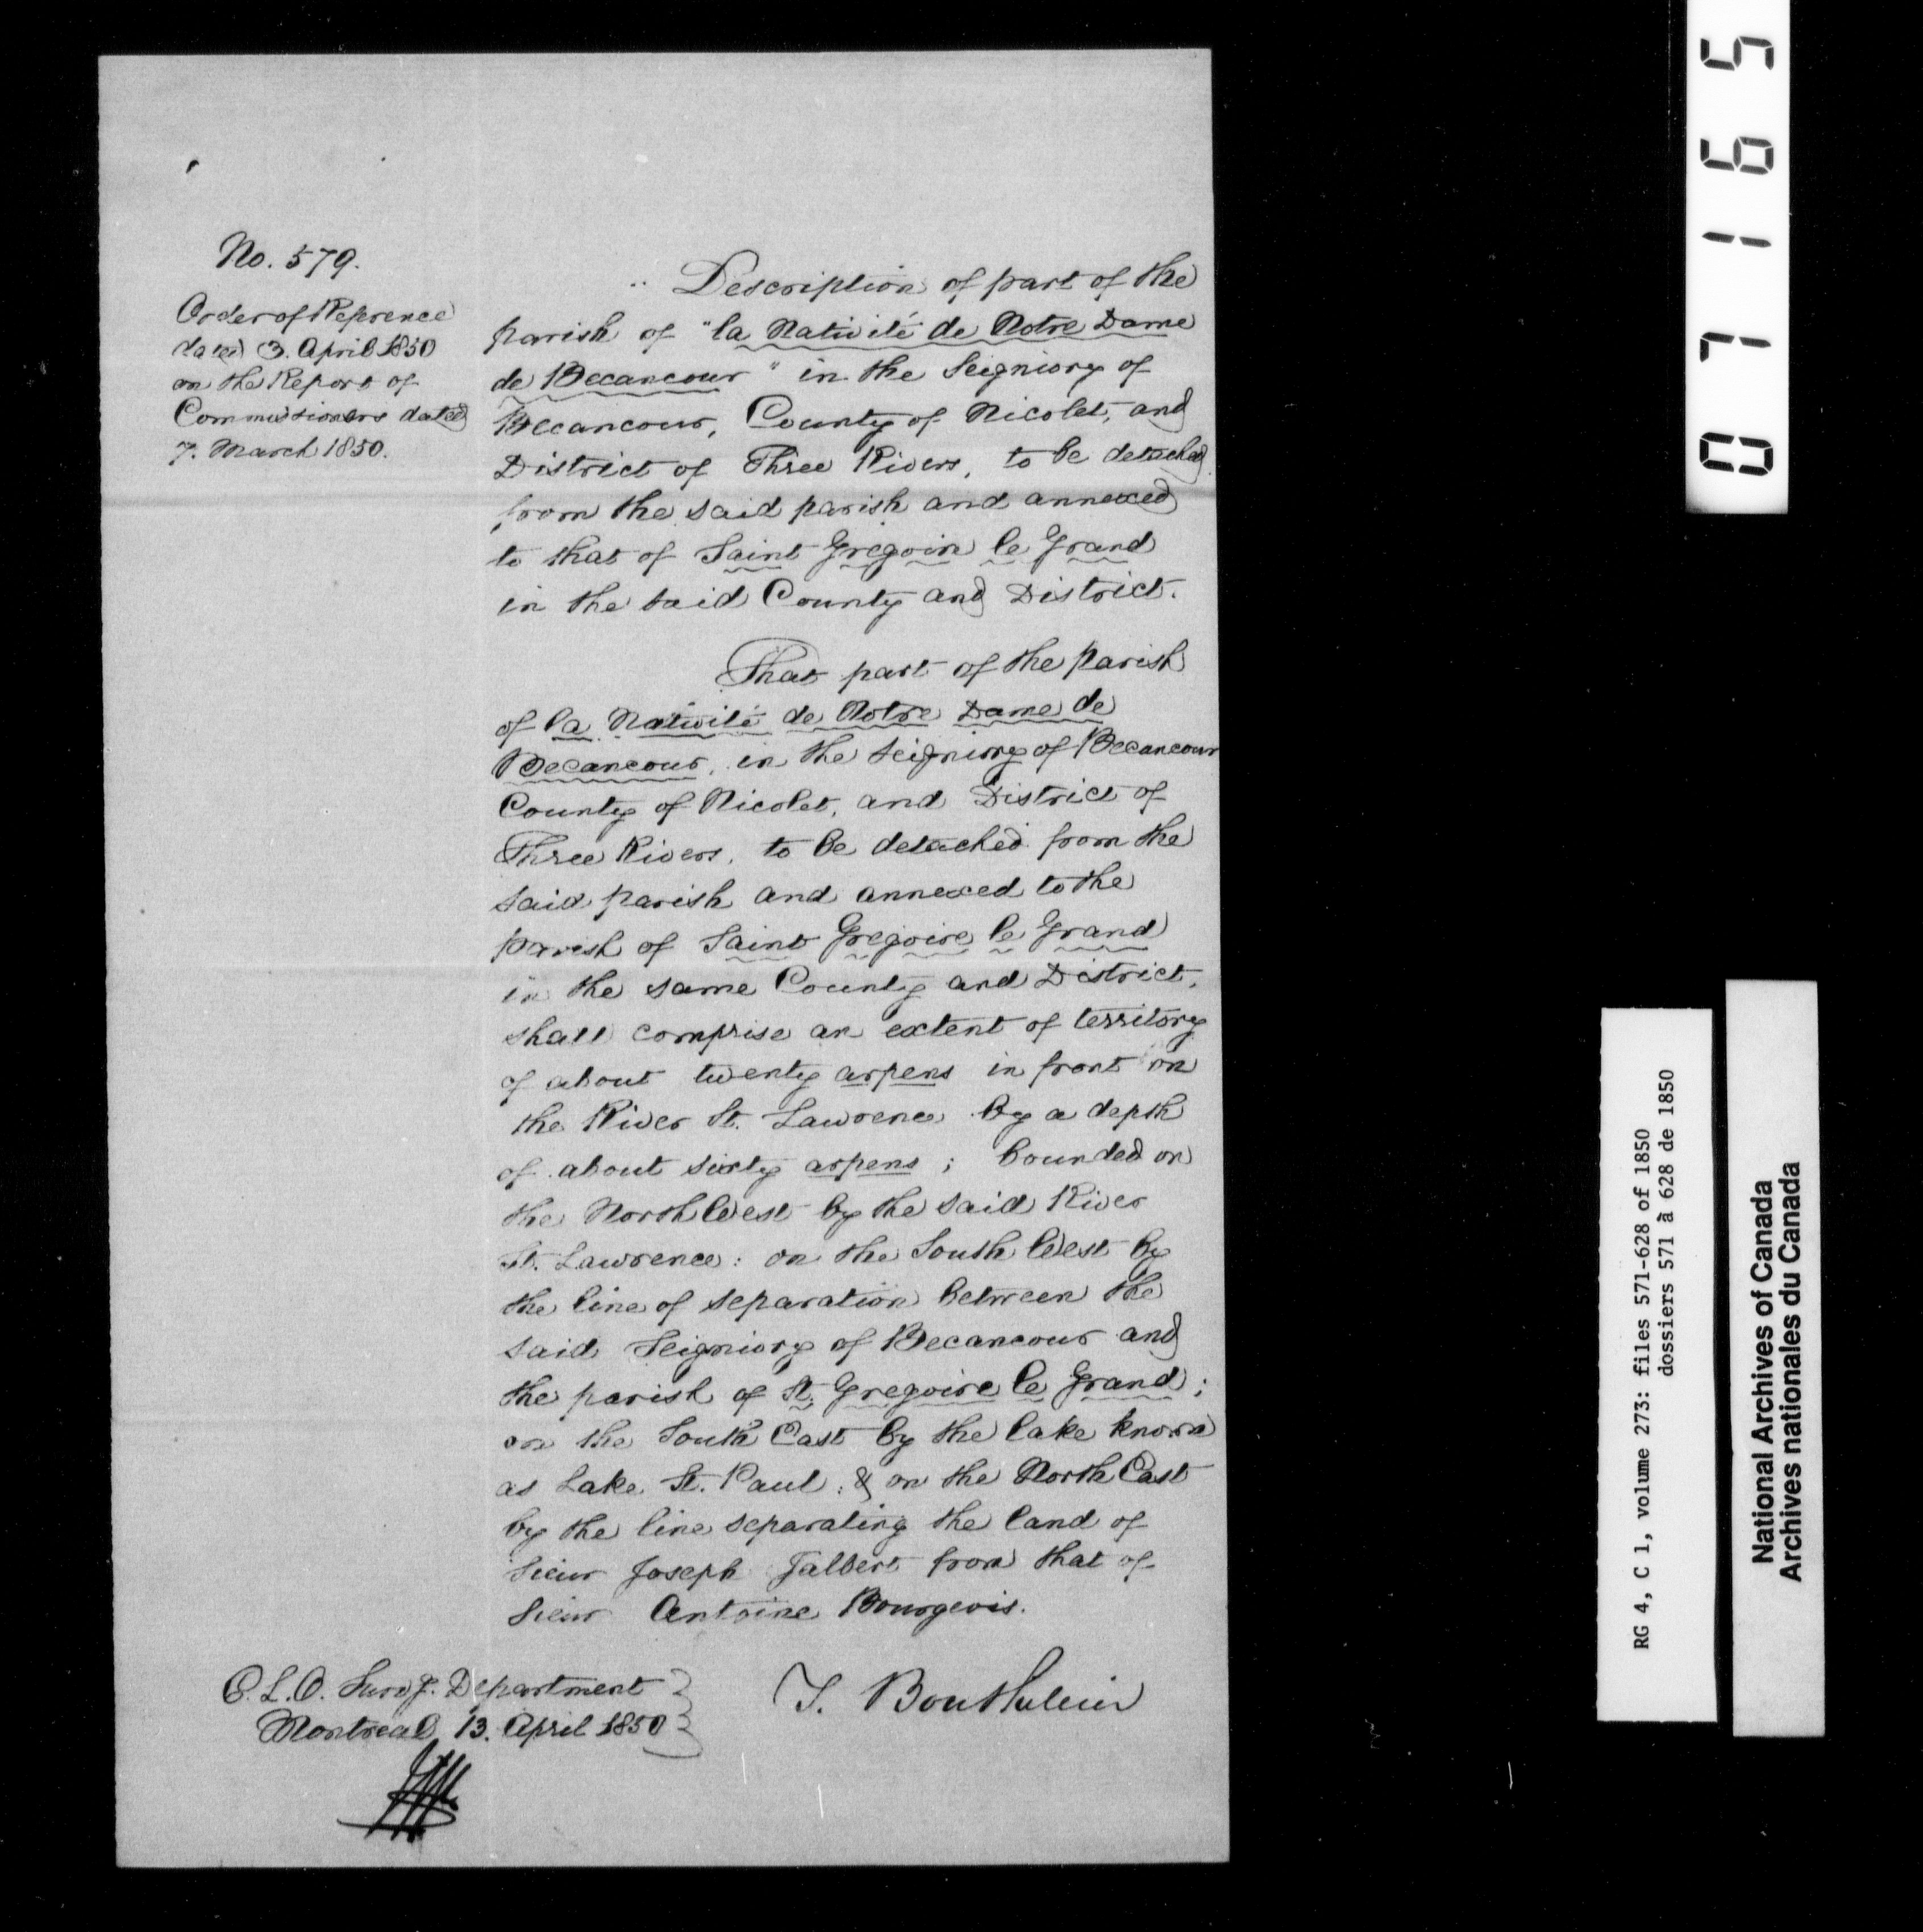 No. 579.
Order of Reference
dated 3. April 1850
on the Report of
Commissioners dated
7. March 1850.
Description of part of the
parish of "la Nativité de Notre Dame
de Becancour" in the Seigniory of
Becancour, County of Nicolet, and
District of Three Rivers, to be detached
from the said parish and annexed
to that of Saint Gregoire le Grand
in the said County and District.
That part of the parish
of la Nativité de Notre Dame de
Becancour, in the Seigniory of Becancour
County of Nicolet, and District of
Three Rivers, to be detached from the
said parish and annexed to the
parish of Saint Gregoire le Grand
in the same County and District,
shall comprise an extent of territory
of about twenty arpens in front on
the River St. Lawrence by a depth
of about sixty arpens; bounded on
the North West by the said River
St. Lawrence: on the South West by
the line of separation between the
said Seigniory of Becancour and
the parish of St. Gregoire le Grand;
on the South East by the lake known
as Lake St. Paul: & on the North East
by the line separating the land of
Sieur Joseph Jalbert from that of
Sieur Antoine Bourgeois.
C. L. O. Survg. Department
Montreal 13. April 1850
T. Bouthillier
07165
RG 4, C 1, volume 273: files 571-628 of 1850
dossiers 571 à 628 de 1850
National Archives of Canada
Archives nationales du Canada